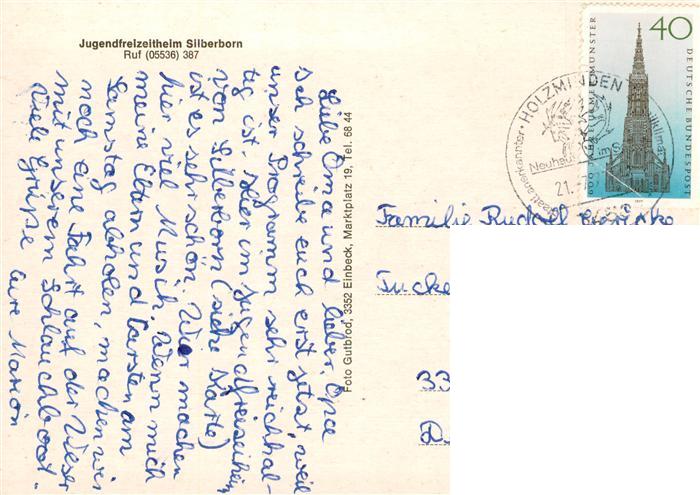 Jugendfreizeitheim Silberborn
Ruf (05536) 387
Liebe Oma und lieber Opa
Ich schreibe euch erst jetzt, weil
unser Programm sehr reichhal-
tig ist. Hier im Jugendfreizeitheim
von Silberborn (siehe Karte)
ist es sehr schön. Wir machen
hier viel Musik. Wenn mich
meine Eltern und Carsten am
Samstag abholen, machen wir
noch eine Fahrt auf der Weser
mit unserem Schlauchboot.
Viele Grüße
eure Marion
Foto Gutbrod, 3352 Einbeck, Marktplatz 19, Tel. 68 44
40
DEUTSCHE BUNDESPOST
600 JAHRE ULMER MÜNSTER
1977
HOLZMINDEN
Staatl. anerkannter
Neuhaus im S
21.
Familie Rudolf
33